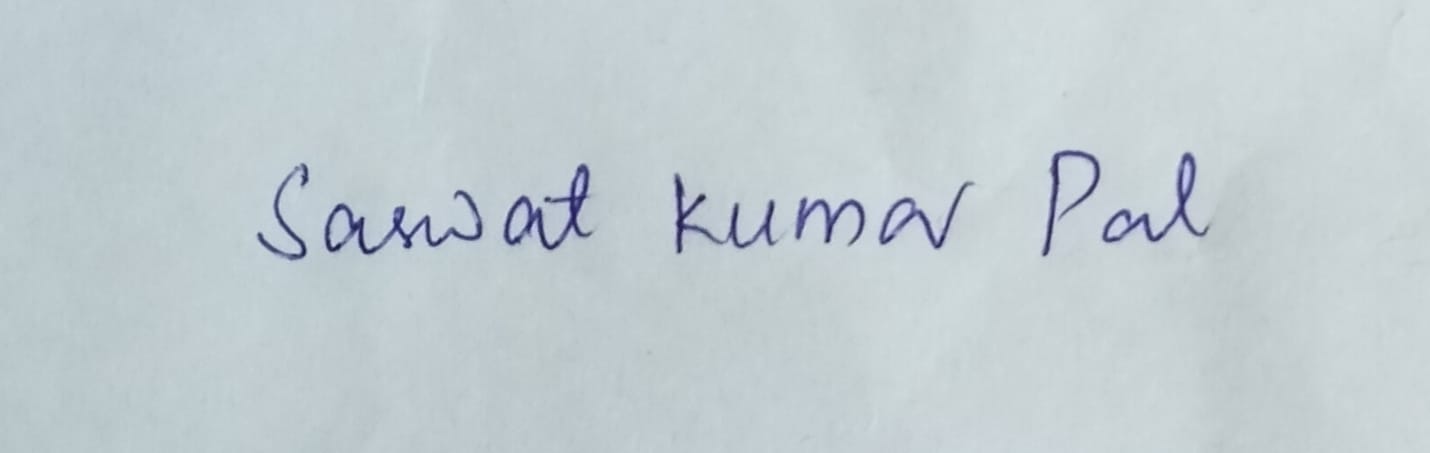 Saswat Kumar Pal